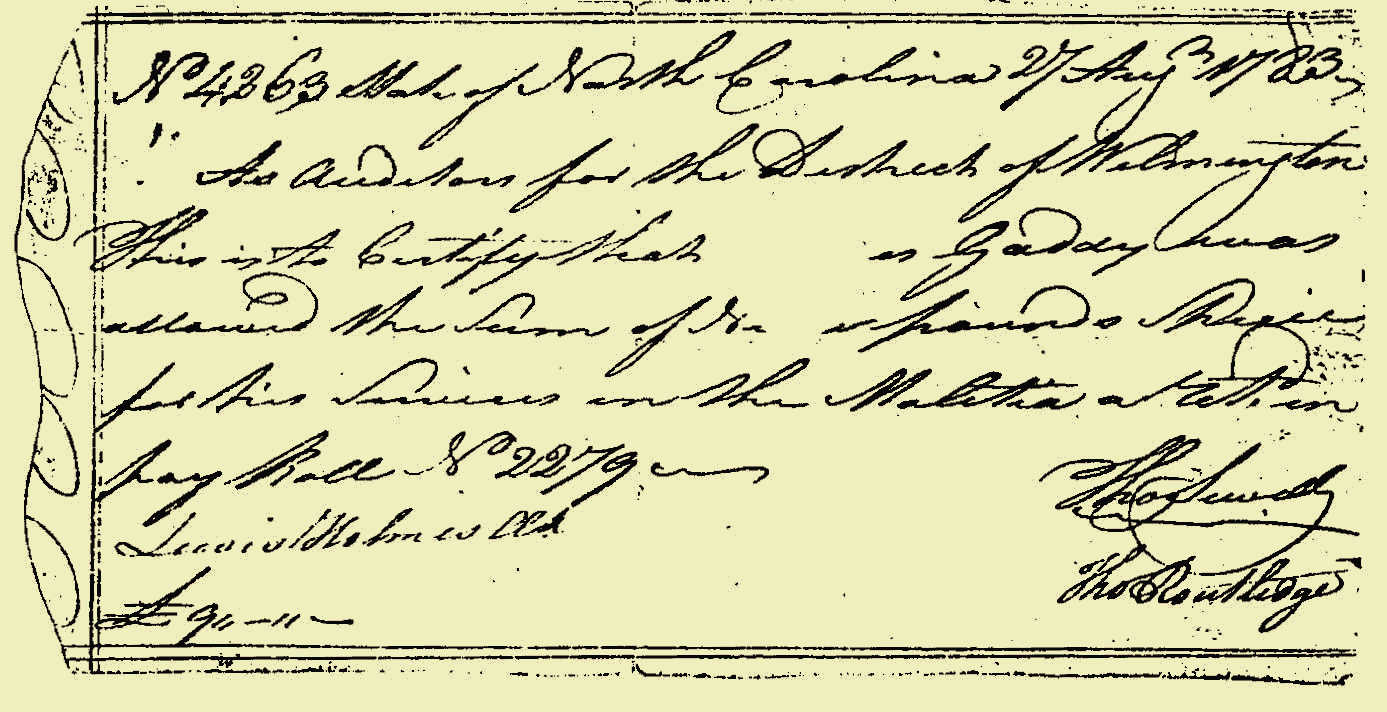 No 4263 State of North Carolina 27 Augt 1783
As Auditors for the Districk of Wilmington
This is to Certify that as Gaddy was
allowed the Sum of pounds Specie
for his Services in the Malitia
pay Roll No 2279
Lewis Holmes Clk Thos Sewell
Tho Routledge
£ 9,,-,,-